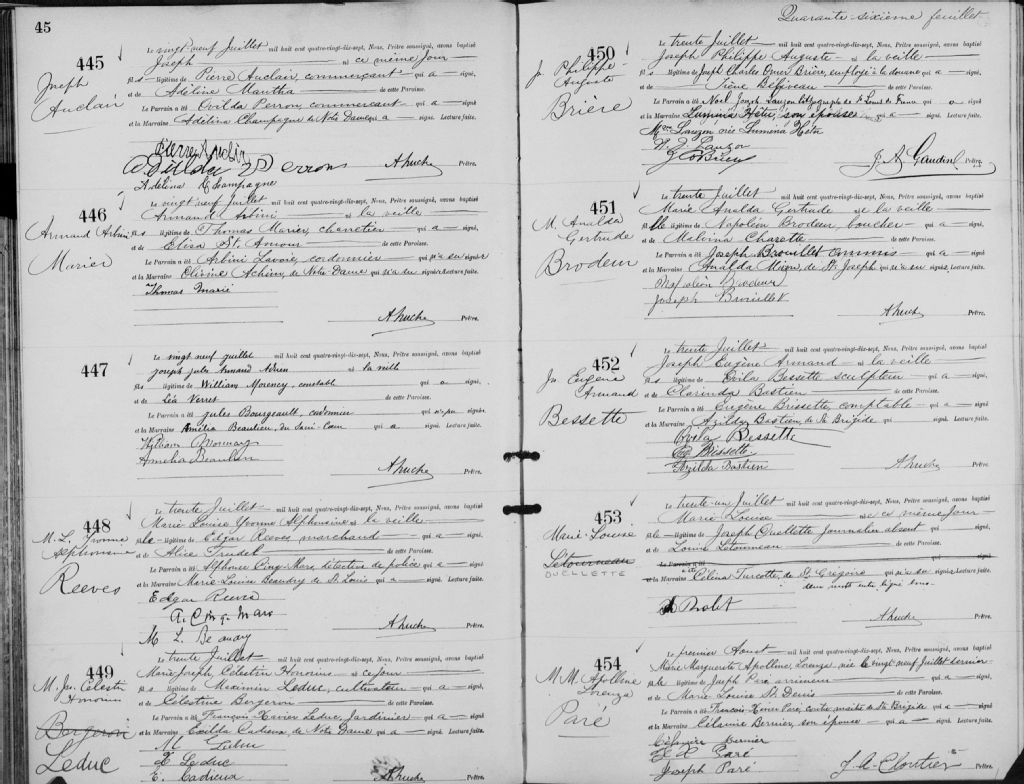 45
445
Joseph
Auclair
Le vingt-neuf Juillet mil huit cent quatre-vingt-dix-sept, Nous, Prêtre soussigné, avons baptisé
Joseph né ce même jour
fils légitime de Pierre Auclair, commerçant qui a signé,
et de Adéline Mantha de cette Paroisse.
Le Parrain a été Ovilda Perron, commerçant qui a signé,
et la Marraine Adélina Champagne de Notre Dame qui a signé. Lecture faite.
Ovilda Perron
Adélina Champagne
A. huche Prêtre.
446
Armand Arbini
Marier
Le vingt neuf Juillet mil huit cent quatre-vingt-dix-sept, Nous, Prêtre soussigné, avons baptisé
Armand Arbini né la veille
fils légitime de Thomas Marier, charretier qui a signé,
et de Eliza St. Amour de cette Paroisse.
Le Parrain a été Arbini Lavoie, cordonnier qui n'a su signer
et la Marraine de Notre Dame qui n'a su signer. Lecture faite.
Thomas Marié
A. huche Prêtre.
447
Le vingt neuf juillet mil huit cent quatre-vingt-dix-sept, Nous, Prêtre soussigné, avons baptisé
Joseph Jules Armand Adrien né la veille
fils légitime de William Morency, constable qui a signé,
et de Léa Verret de cette Paroisse.
Le Parrain a été Jules Bourgeault, cordonnier qui signé,
et la Marraine Amélia Beaulieu, du Sacré-Coeur qui a signé. Lecture faite.
A. huche Prêtre.
448
M. L. Yvonne
Alphonsine
Reeves
Le trente Juillet mil huit cent quatre-vingt-dix-sept, Nous, Prêtre soussigné, avons baptisé
Marie Louise Yvonne Alphonsine née la veille
fille légitime de Edgar Reeves marchand qui a signé,
et de Alice Trudel de cette Paroisse.
Le Parrain a été Alphonse Cinq-Mars, détective de police qui a signé,
et la Marraine Marie-Louise Beaudry de St. Louis qui a signé. Lecture faite.
Edgar Reeves
A. Cinq-Mars
M. L.
A. huche Prêtre.
449
M. Jos. Célestin
Honorius
Bergeron
Leduc
Le trente Juillet mil huit cent quatre-vingt-dix-sept, Nous, Prêtre soussigné, avons baptisé
Marie Joseph Célestin Honorius né ce jour
fils légitime de Maximin Leduc, cultivateur qui a signé,
et de Célestine Bergeron de cette Paroisse.
Le Parrain a été François Xavier Leduc, Jardinier qui a signé,
et la Marraine Exilda Cadieux, de Notre Dame qui a signé. Lecture faite.
M Leduc
X Leduc
E. Cadieux
A. huche Prêtre.
Quarante-sixième feuillet
450
Js. Philippe
Auguste
Brière
Le trente Juillet mil huit cent quatre-vingt-dix-sept, Nous, Prêtre soussigné, avons baptisé
Joseph Philippe Auguste né la veille
fils légitime de Joseph Charles Omer Brière, employé à la douane qui a signé,
et de Irène Béliveau de cette Paroisse.
Le Parrain a été Noël Joseph Lauzon lithographe de St Louis de France qui a signé
et la Marraine Lumina Hétu, son épouse a signé. Lecture faite.
Mme Lauzon née Lumena Hétu
N. J. Lauzon
Prêtre.
451
M. Analda
Gertrude
Brodeur
Le trente Juillet mil huit cent quatre-vingt-dix-sept, Nous, Prêtre soussigné, avons baptisé
Marie Analda Gertrude née la veille
fille légitime de Napoléon Brodeur, boucher qui a signé,
et de Malvina Charette de cette Paroisse.
Le Parrain a été Joseph Brouillet commis qui a signé,
et la Marraine Analda de St. Joseph qui n'a su signer. Lecture faite.
Napoléon Brodeur
Joseph Brouillet
A. huche Prêtre.
452
Js. Eugène
Armand
Bessette
Le trente Juillet mil huit cent quatre-vingt-dix-sept, Nous, Prêtre soussigné, avons baptisé
Joseph Eugène Armand né la veille
fils légitime de Ovila Bessette sculpteur qui a signé,
et de Clarinda Bastien de cette Paroisse.
Le Parrain a été Eugène Brissette, comptable qui a signé,
et la Marraine Azilda Bastien, de Ste Brigide qui a signé. Lecture faite.
Ovila Bessette
Brissette
Azilda Bastien
A. huche Prêtre.
453
Marie-Louise
Létourneau
OUELLETTE
Le trente-un Juillet mil huit cent quatre-vingt-dix-sept, Nous, Prêtre soussigné, avons baptisé
Marie Louise née ce même jour
fille légitime de Joseph Ouellette journalier absent qui a signé,
et de Louise Letourneau de cette Paroisse.
Le Parrain a été
et la Marraine a été Célina Turcotte, de St. Grégoire qui n'a su signer. Lecture faite.
A. huche Prêtre.
454
M. M. Apolline
Lorenza
Paré
Le premier Aout mil huit cent quatre-vingt-dix-sept, Nous, Prêtre soussigné, avons baptisé
Marie Marguerite Apolline, Lorenza née le vingt neuf Juillet dernier
fille légitime de Joseph Paré arrimeur qui a signé,
et de Marie Louise St. Denis de cette Paroisse.
Le Parrain a été François-Xavier Paré, contre-maitre de Ste Brigide qui a signé,
et la Marraine Célanire Bernier, son épouse qui a signé. Lecture faite.
Célanire Bernier
F. X. Paré
Joseph Paré
J. A. Cloutier Prêtre.